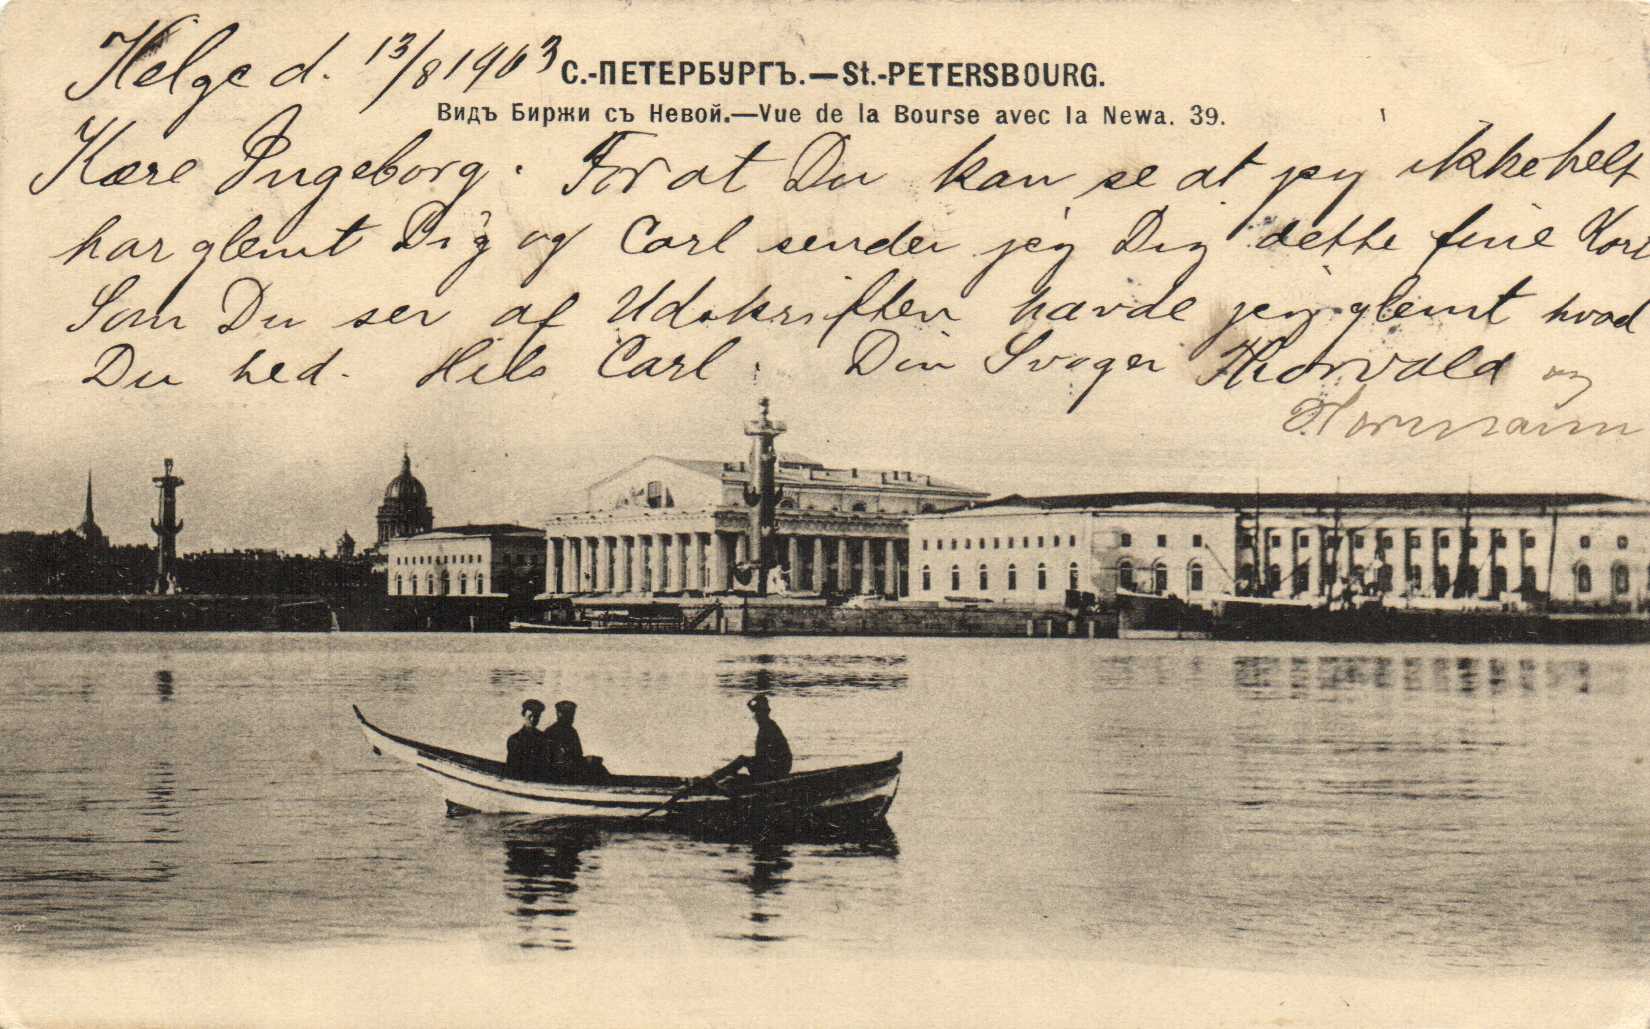 Helge d. 13/8 1903
С.-ПЕТЕРБУРГЪ.—St.-PETERSBOURG.
Видъ Биржи съ Невой.—Vue de la Bourse avec la Newa. 39.
Kære Ingeborg. For at Du kan se at jeg ikke helt
har glemt Dig og Carl sender jeg Dig dette fine Kort
Som Du ser af Udskriften havde jeg glemt hvad
Du hed. Hils Carl. Din Svoger Thorvald og